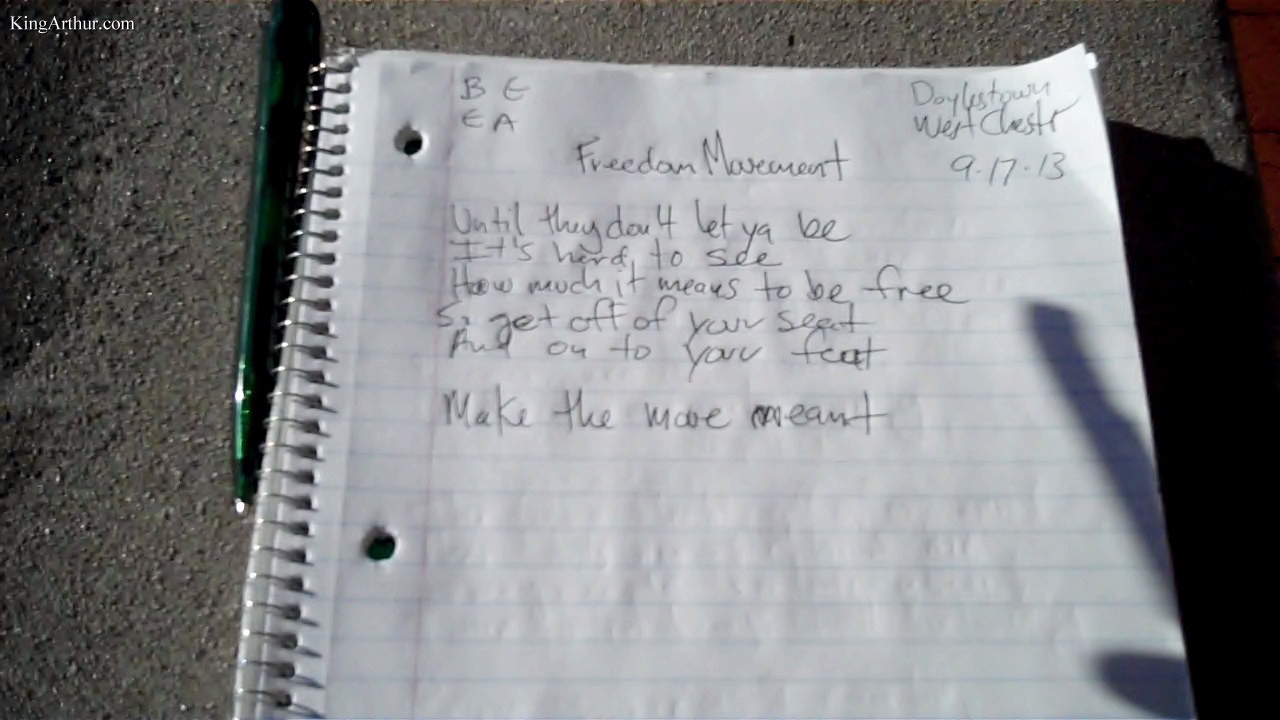 KingArthur.com
B E
E A
Doylestown
West Chestr
9.17.13
Freedom Movement
Until they don't let ya be
It's hard to see
How much it means to be free
So get off of your seat
And on to your feat
Make the move meant